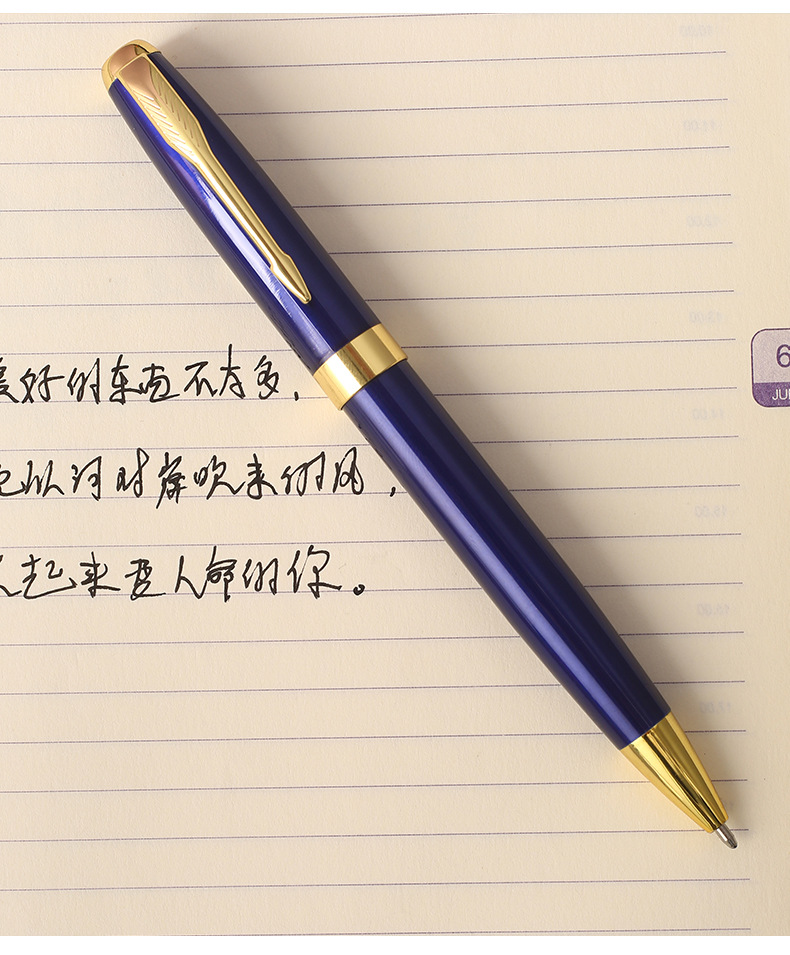 好的东西不太多，
从河对岸吹来的风，
起来要人命的你。
6